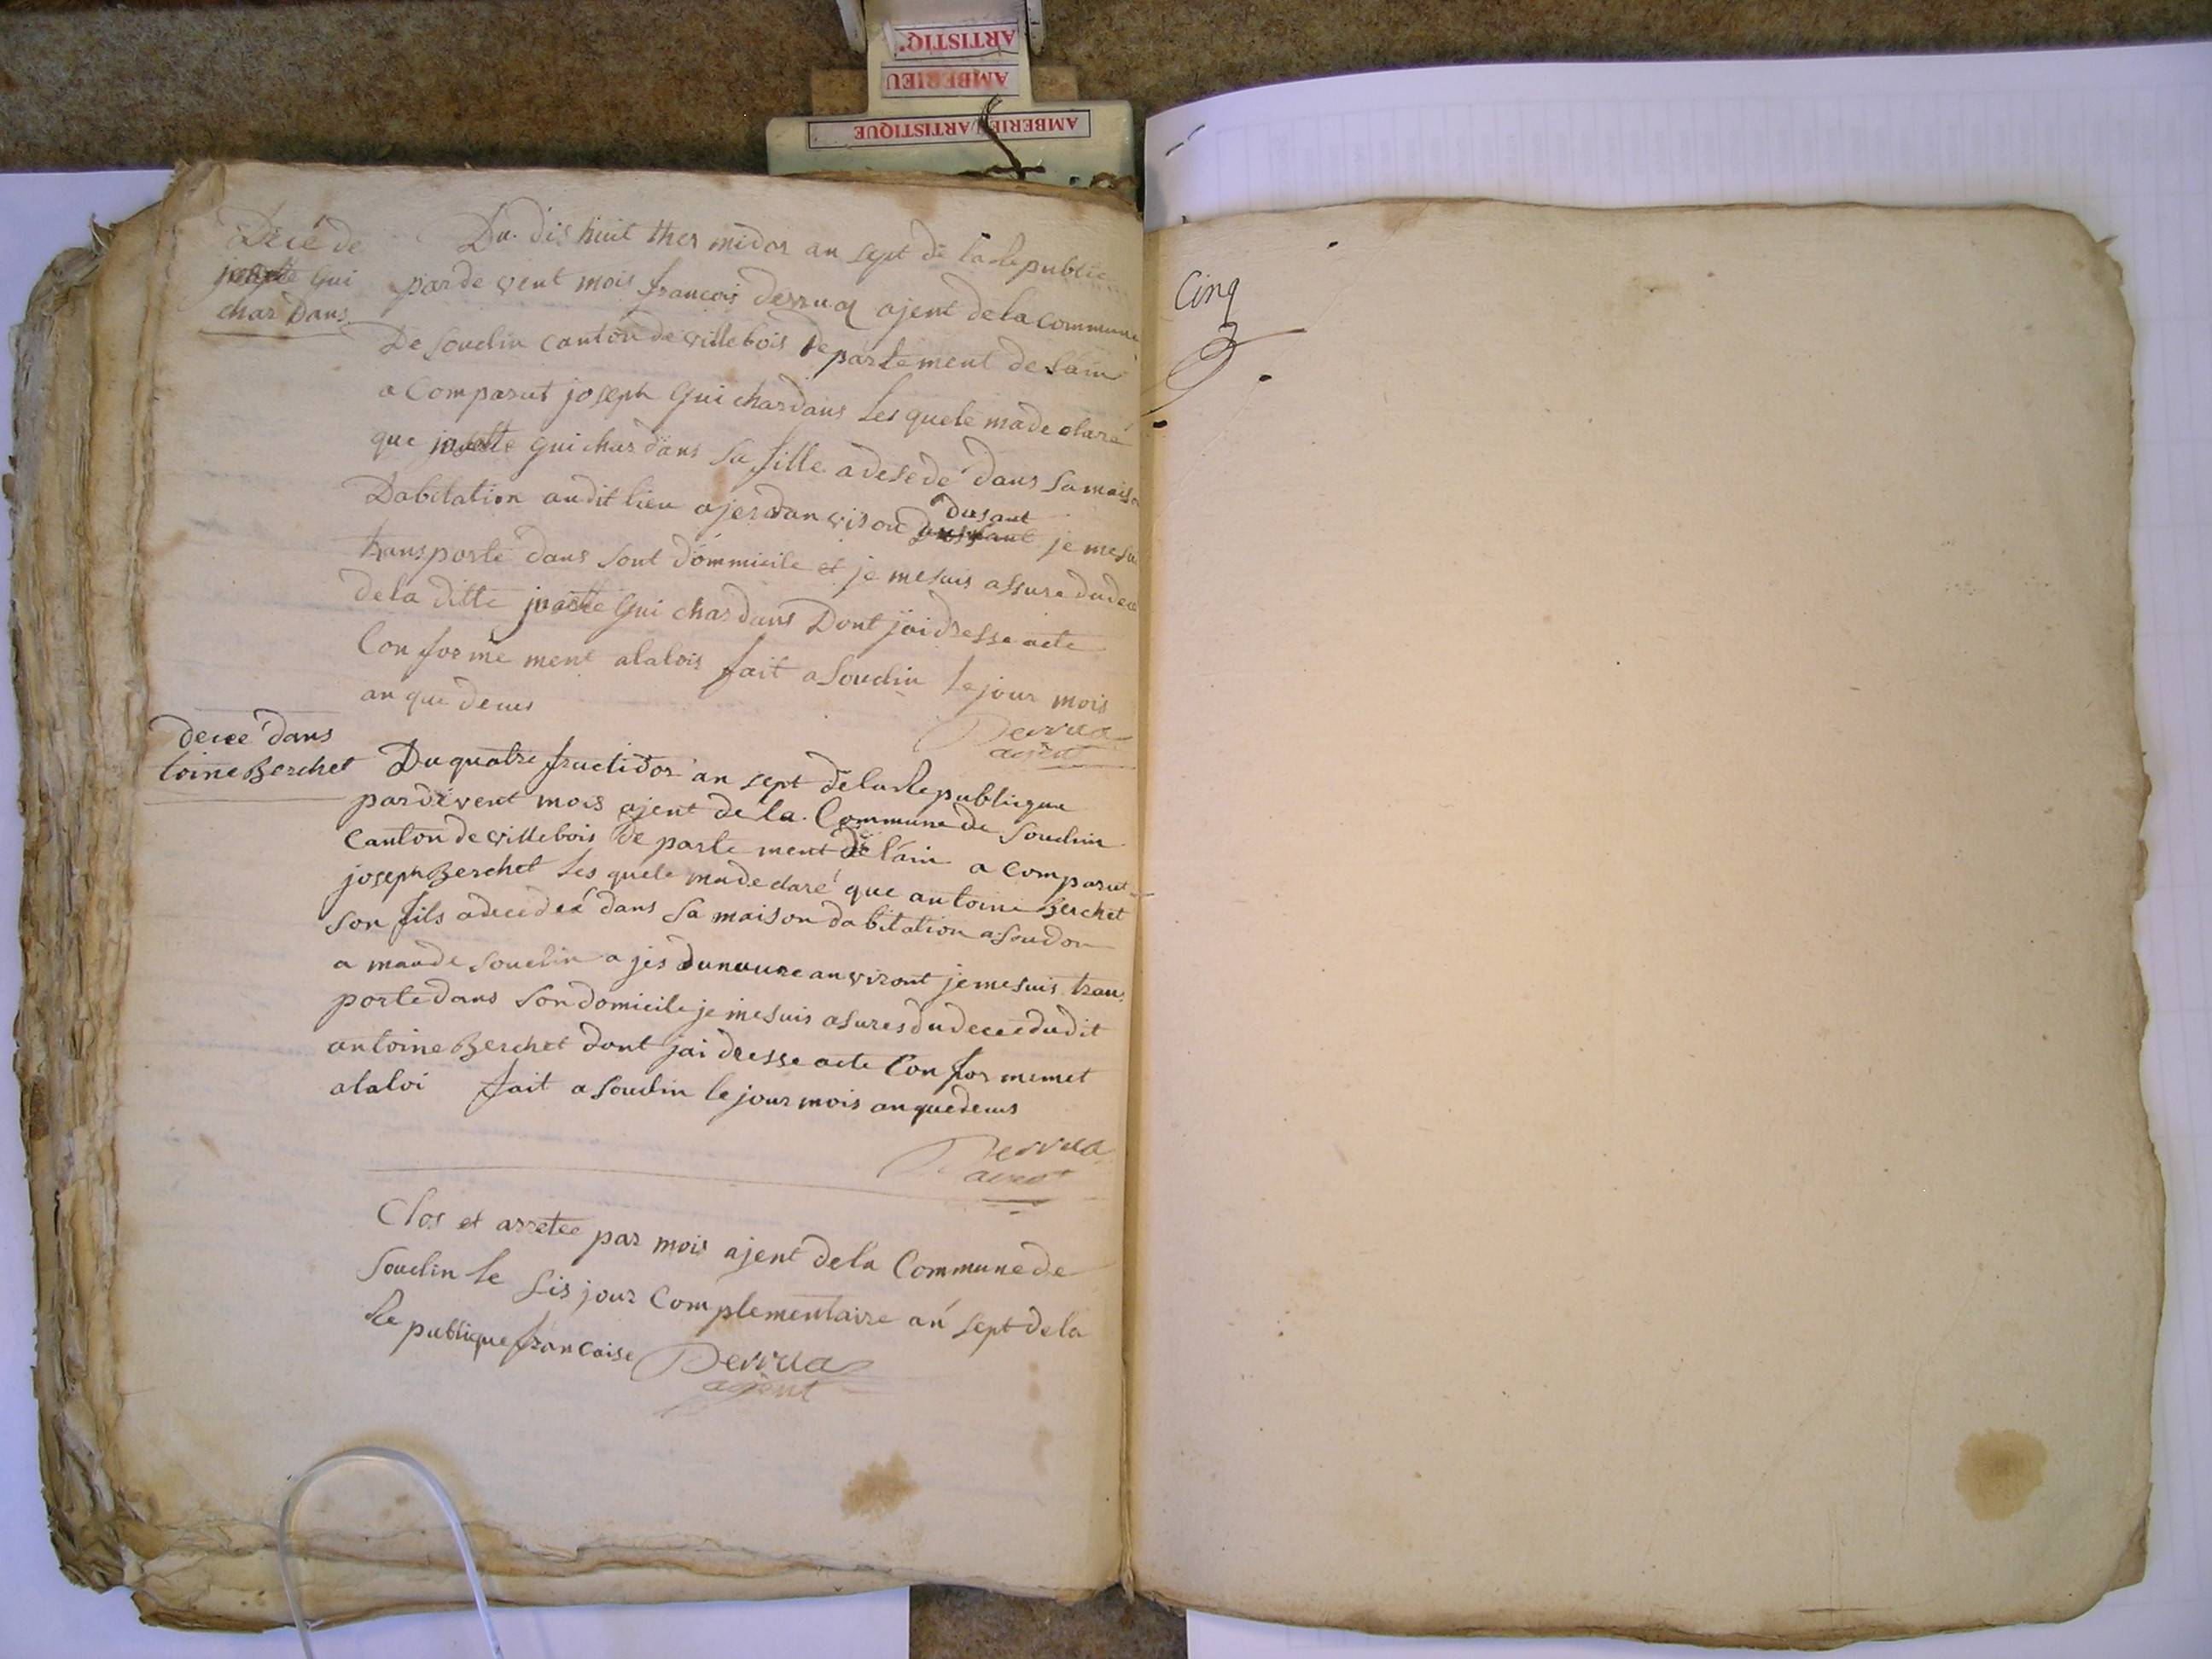 ARTISTIQ'
AMBERIEU
AMBERIEU ARTISTIQUE
Decé de
Gui
chardans
Du dis huit ther midor an sept de la Republic
parde vent mois francois derrua ajent dela commune
De Soudin canton de villebois De partement de lain
a Comparut joseph Gui chardans Les quele made claré
que Gui chardans sa fille a desedé dans sa maiso
Dabitation audit lieu ajer dan viron
dusant
je me sui
transporté dans sont dommicile et je me suis assure du dece
dela ditte Gui chardans Dont jai dresse acte
Con for me ment alalois fait a Soudin le jour mois
an que deus
Derrua
agent
decee dans
toine Berchet
Du quatre fructidor an sept dela Republique
pardevent mois ajent de la Commune de Soudin
Canton de villebois De parte ment de lain a Comparut
joseph Berchet Les quele made claré que antoine Berchet
son fils adecedeé dans sa maison dabitation a Soudon
a mande Soudin a jes an viront je me suis trans
porte dans son domicile je me suis asures du decee dudit
antoine Berchet dont jai dresse acte Con for memet
alaloi fait a Soudin le jour mois anquedeus
Derrua
agent
Clos et arretee par mois ajent dela Commune de
Soudin le sis jour Complementaire an sept dela
Re publique francaise Derrua
agent
Cinq